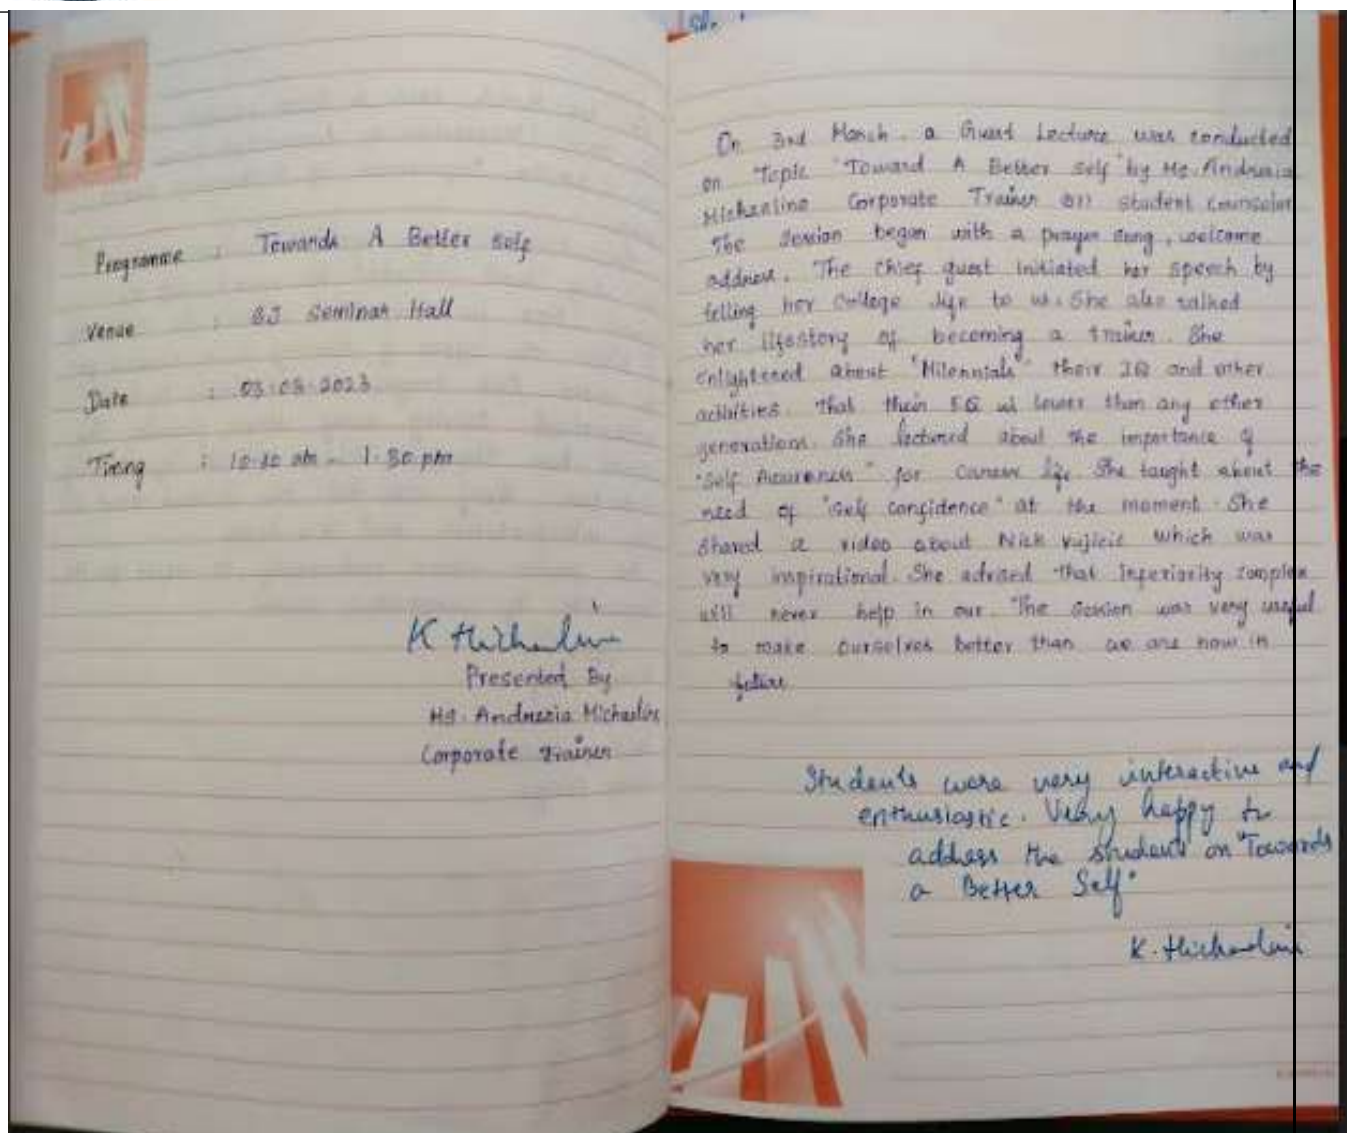 Programme : Towards A Better Self
Venue : SJ Seminar Hall
Date : 03.03.2023
Timing : 10.30 am - 1.30 pm
Presented By
Ms. Andrezia Michaeline
Corporate Trainer
She
On 3rd March a Guest Lecture was conducted
on Topic "Toward A Better Self" by Ms. Andrezia
Michaeline Corporate Trainer student Counselor
The Session began with a prayer song, welcome
address. The chief guest initiated her speech by
telling her College life to us. She also talked
her lifestory of becoming a trainer. She
enlightened about "Milennials" their IQ and other
activities. That their EQ is lower than any other
generations. She lectured about the importance of
"Self Awareness" for Career life. She taught about the
need of "Self Confidence" at the moment. She
shared a video about Nick Vujicic which was
very inspirational. She advised that Inferiority complex
will never help in our. The Session was very useful
to make ourselves better than we are now in
future
Students were very interactive and
enthusiastic. Very happy to
address the students on "Towards
a Better Self"
K. Michaeline